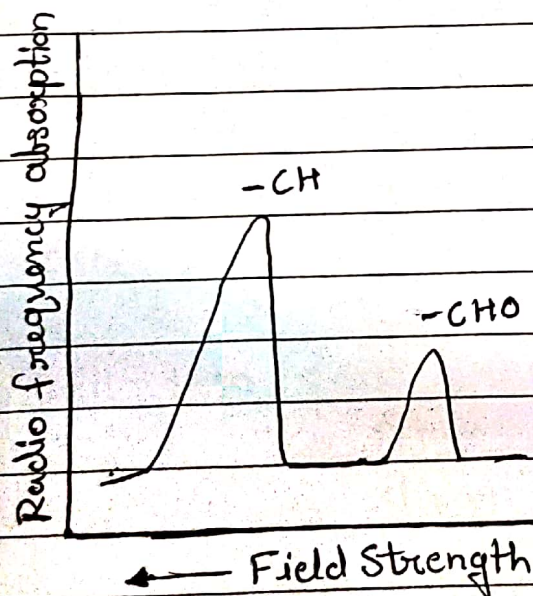 Radio frequency absorption
-CH
-CHO
← Field Strength